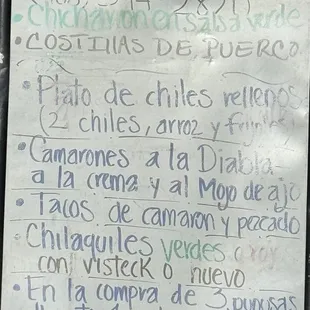 • Chicharron en salsa verde
• COSTILLAS DE PUERCO
• Plato de chiles rellenos
(2 chiles, arroz y frijoles
• Camarones a la Diabla
a la crema y al Mojo de ajo
• Tacos de camaron y pezcado
• Chilaquiles verdes o rojos
con visteck o huevo
• En la compra de 3 pupusas